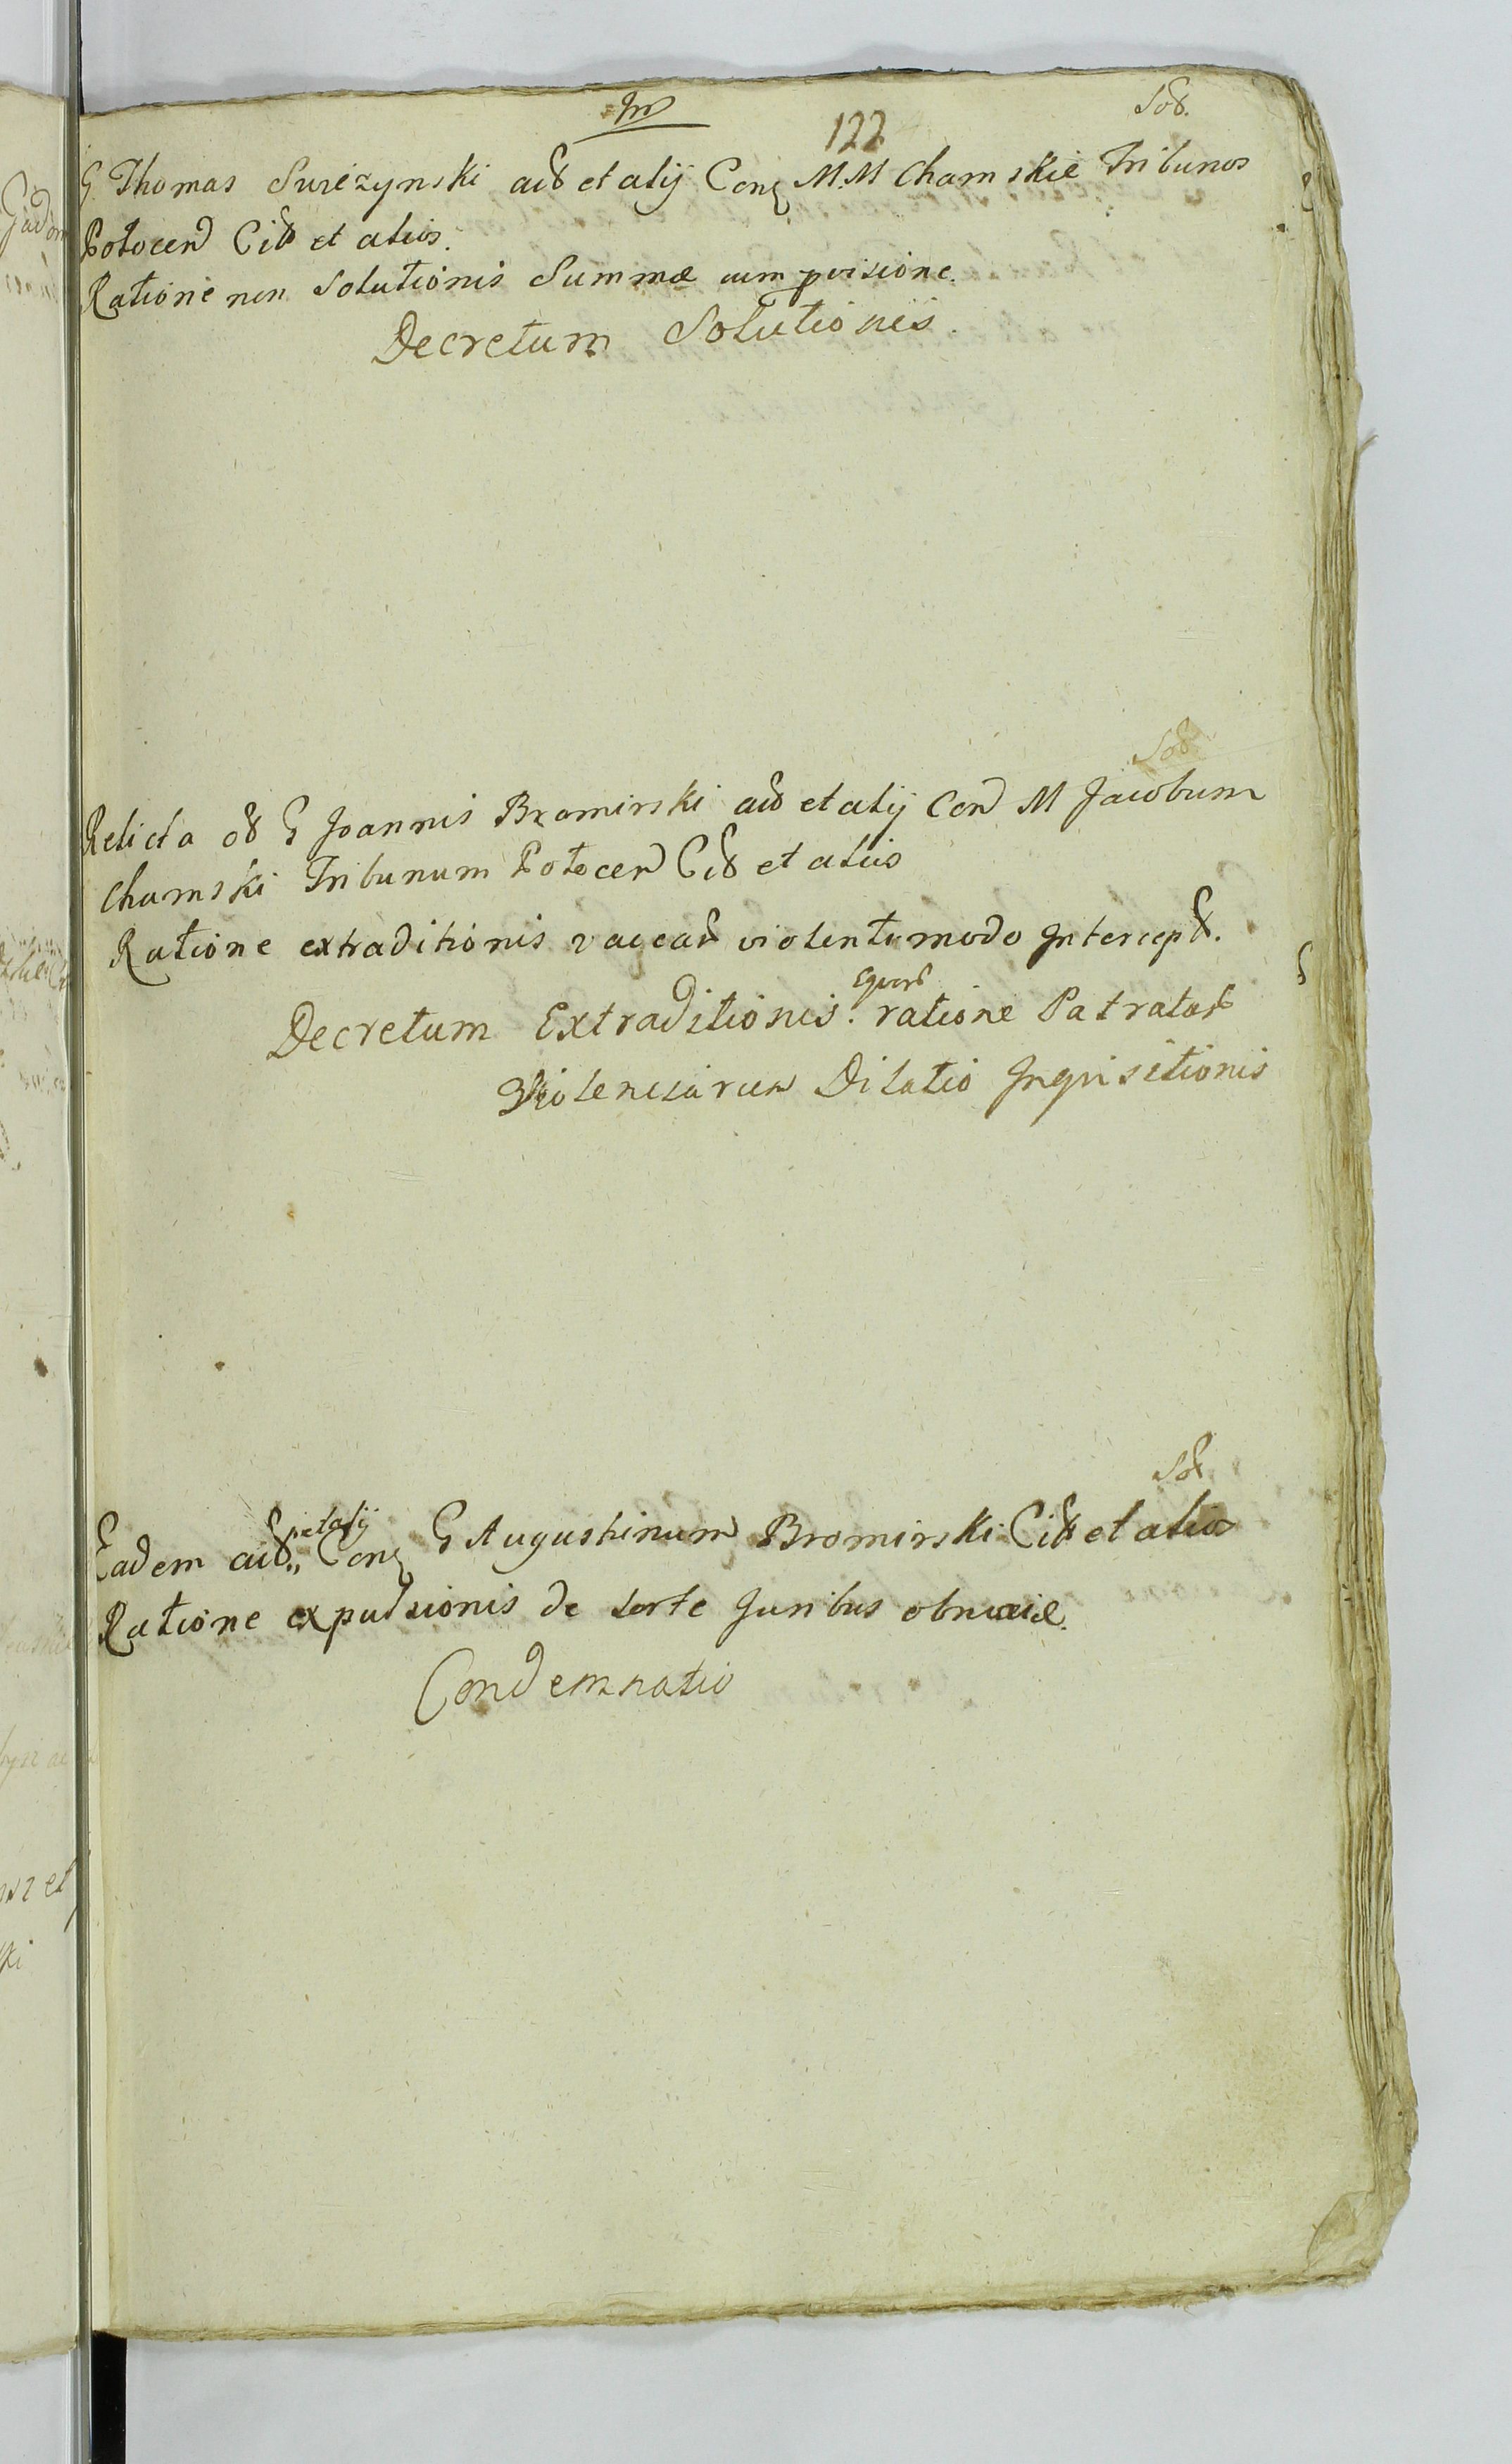 122
G Thomas Swiezynski act et alij Cong M.M Chamskie Tribunos
Potocen Cit et alios.
Ratione non Solutionis Summæ cum pvisione.
Decretum Solutionis.
Relicta ol G Joannis Bromirski act et alij Con M Jacobum
Chamski Tribunum Potocen Cit et alios
Ratione extraditionis vaccar violento modo Intercept.
Decretum Extraditionis. ratione Patratar
Violenciarum Dilatio Inqvisitionis
et alij
Eadem act Cong G Augustinum Bromirski Cit et alios
Ratione expulsionis de sorte Juribus obnoxiæ.
Condemnatio